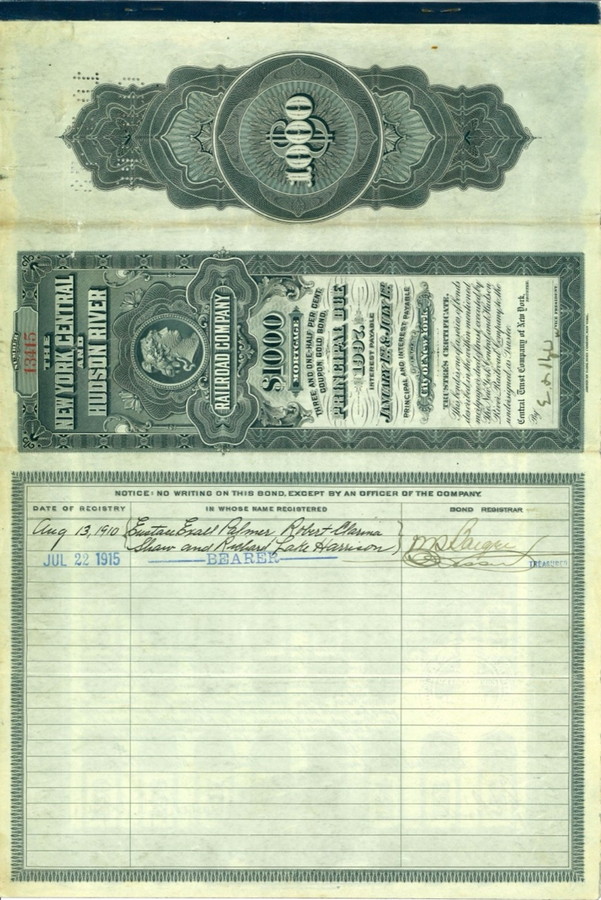 $1000
NUMBER
13415
THE
NEW YORK CENTRAL
AND
HUDSON RIVER
RAILROAD COMPANY
$1000
MORTGAGE
THREE AND ONE-HALF PER CENT.
COUPON GOLD BOND.
PRINCIPAL DUE
1997.
INTEREST PAYABLE
JANUARY 1ST & JULY 1ST
PRINCIPAL AND INTEREST PAYABLE
City of New York.
TRUSTEE'S CERTIFICATE.
This bond is one of a series of bonds
described in the within mentioned
mortgage executed by
The New York Central and Hudson
River Railroad Company to the
undersigned as Trustee
Central Trust Company of New York,
By
NOTICE: NO WRITING ON THIS BOND, EXCEPT BY AN OFFICER OF THE COMPANY.
DATE OF REGISTRY IN WHOSE NAME REGISTERED BOND REGISTRAR
Aug 13, 1910 Palmer Robert
Shaw and Lake Harrison
JUL 22 1915 BEARER TREASURER